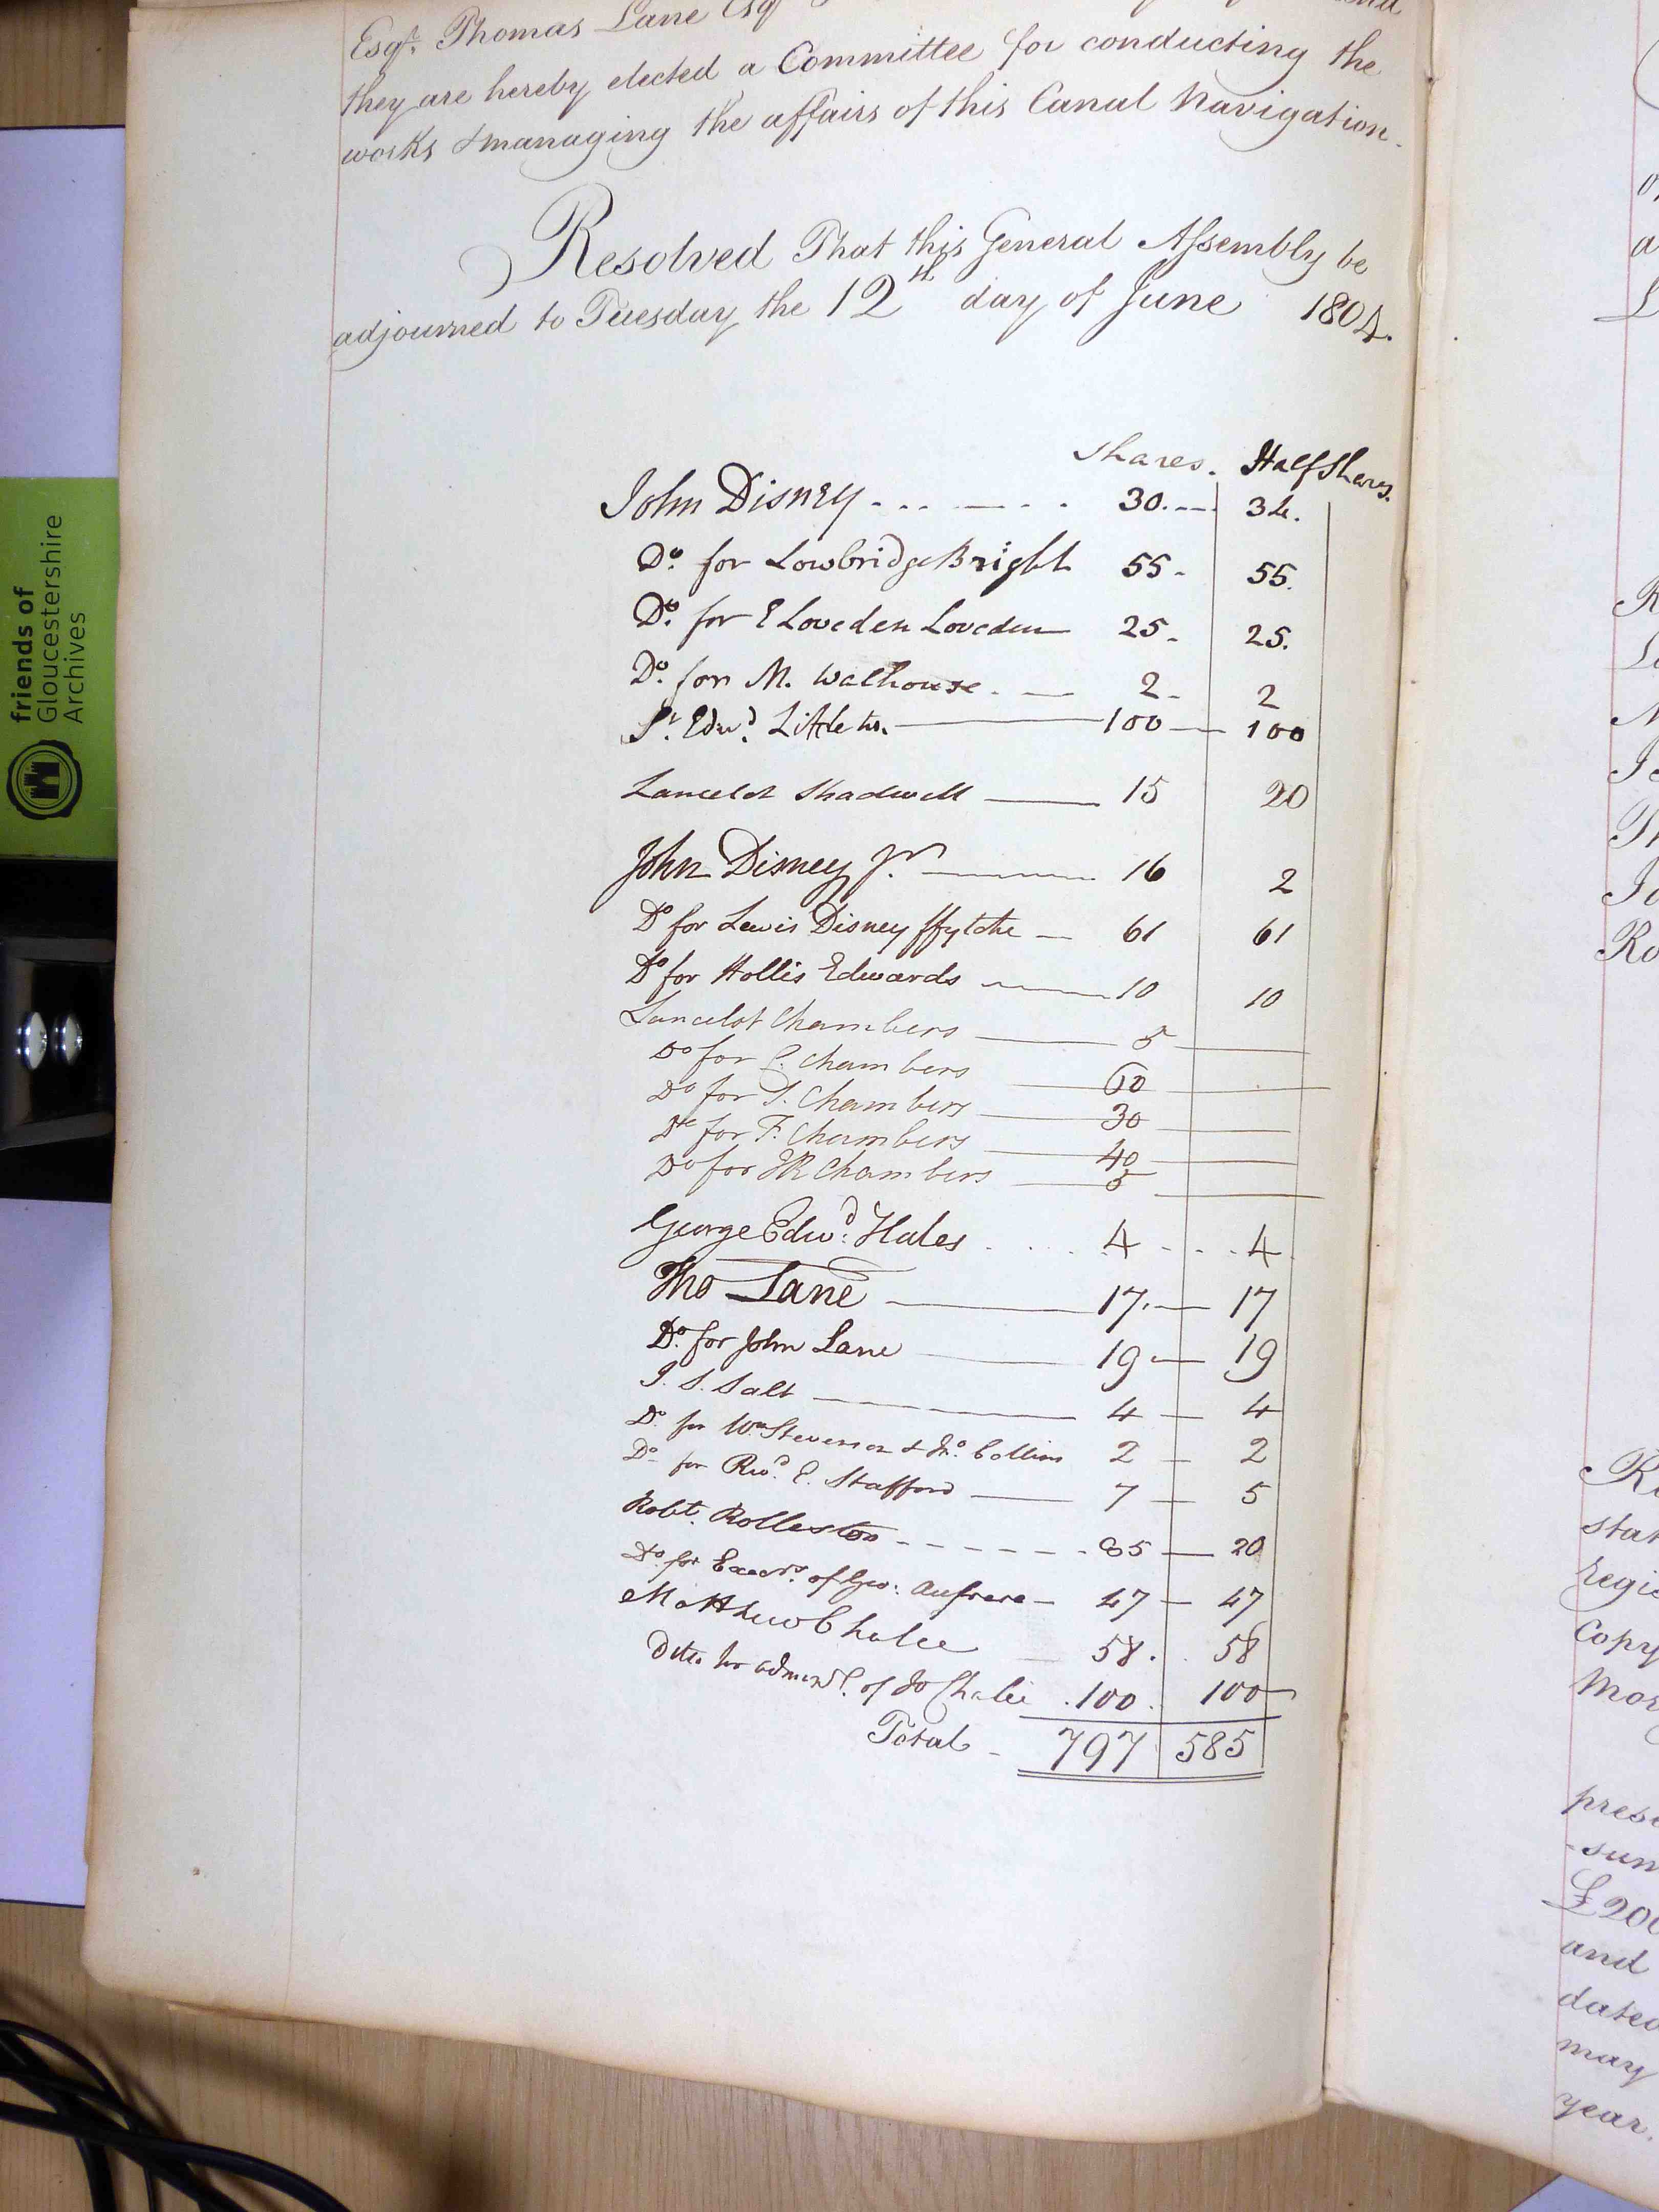 Esqr. Thomas Lane Esqr
they are hereby elected a Committee for conducting the
works & managing the affairs of this Canal Navigation.
Resolved That this General Assembly be
adjourned to Tuesday the 12th day of June 1804.
Shares. Half Shares.
John Disney - - - - - - 30. -- 34.
Do. for Lowbridge Bright 55 - 55.
Do. for E Loveden Loveden 25 - 25.
Do. for M. Walhouse. — 2 - 2
Sr. Edwd. Littleton. — 100 — 100
Lancelot Shadwell — 15 20
John Disney Jr. — 16 2
Do for Lewis Disney ffytche — 61 61
Do for Hollis Edwards — 10 10
Lancelot Chambers — 5 —
Do for C. Chambers — 60 —
Do for S. Chambers — 30 —
Do for F. Chambers — 40 —
Do for HR Chambers — 5 —
George Edwd. Hales . . . . 4 - . . 4.
Tho Lane — 17. — 17
Do. for John Lane — 19 — 19
J. S. Salt — 4 — 4
Do. for Wm Stevenson & Jno. Collins 2 — 2
Do for Revd. E. Stafford — 7 — 5
Robt. Rolleston - - - - - - 85 — 20
Do. for Exors. of Geo: Aufrere — 47 — 47
Matthew Chalie 58. . 58
Ditto for of Jo Chalie . 100. 100
Total - 797 585
friends of
Gloucestershire
Archives
R
L
M
Jo
Th
Jo
Ro
Re
stat
regis
Copy
Mor
prese
-sum
£200
and
dated
may
year.